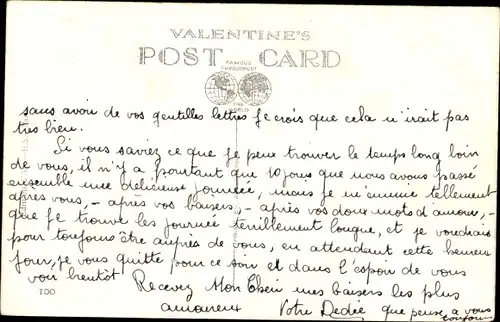 VALENTINE'S
POST CARD
FAMOUS
THROUGHOUT
THE
WORLD
sans avoir de vos gentilles lettres je crois que cela n'irait pas
très bien.
Si vous saviez ce que je peux trouver le temps long loin
de vous, il n'y a pourtant que 10 jours que nous avons passé
ensemble une délicieuse journée, mais je m'ennuie tellement
après vous, - après vos baisers - après vos doux mots d'amour, -
que je trouve les journée terriblement longue, et je voudrais
pour toujours être auprès de vous, en attendant cette heureux
jour, je vous quitte pour ce soir et dans l'espoir de vous
voir bientôt Recevez Mon Chéri mes baisers les plus
amoureux Votre Dédée que pense a vous
toujours
100